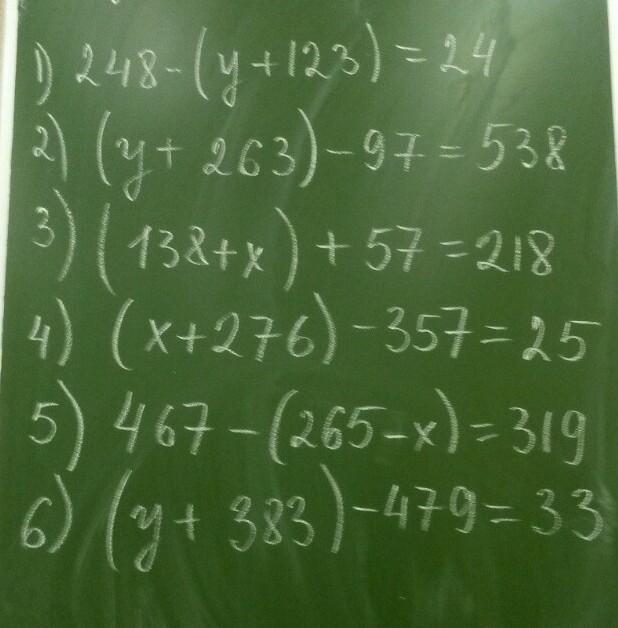 1) 248-(y+123)=24
2) (y+263)-97=538
3) (138+x)+57=218
4) (x+276)-357=25
5) 467-(265-x)=319
6) (y+383)-479=33